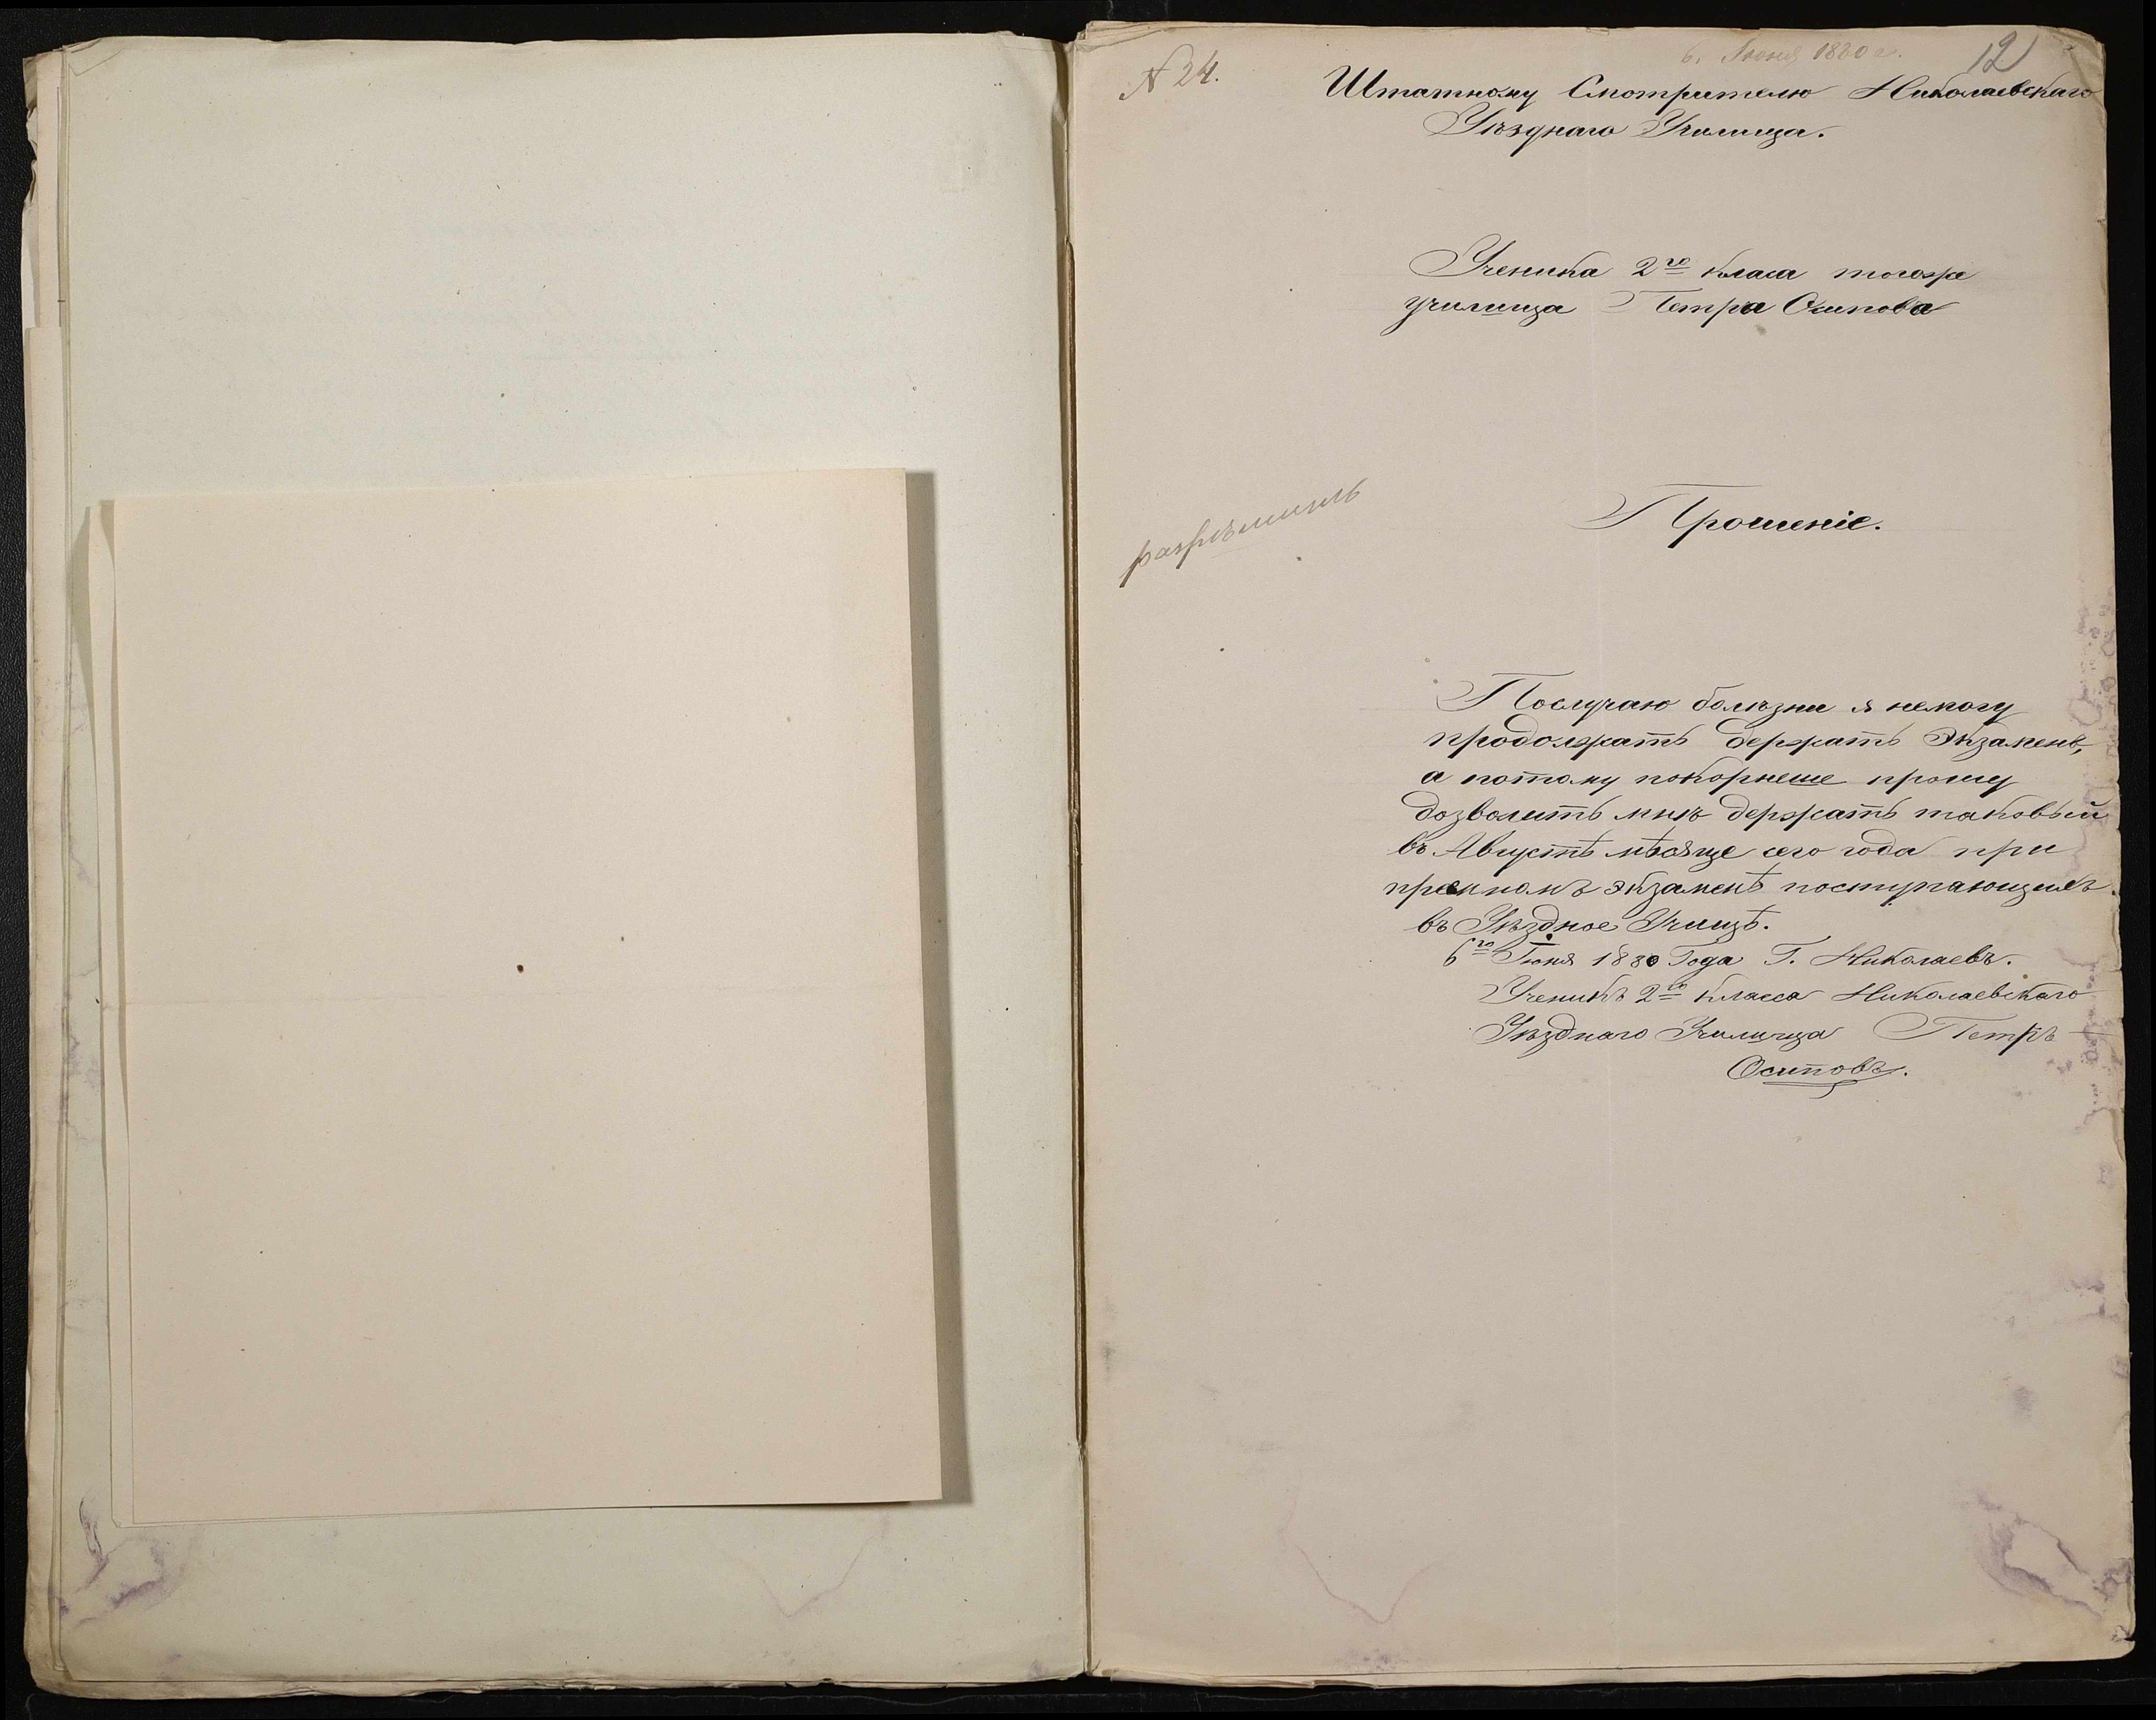 6. Июня 1880 г.
12
№ 24.
Штатному Смотрителю Николаевскаго
Уѣзднаго Училища.
Ученика 2го класа тогоже
училища Петра Осипова
разрѣшить
Прошеніе.
Послучаю болѣзни я немогу
продолжать держать Экзаменъ,
а потому покорнеше прошу
дозволить мнѣ держать таковый
въ Августѣ мѣсяце сего года при
преемномъ экзаменѣ поступающихъ
въ Уѣздное Учищѣ.
6го Іюня 1880 Года Г. Николаевъ.
Ученикъ 2го класса Николаевскаго
Уѣзднаго Училища Петръ
Осиповъ.